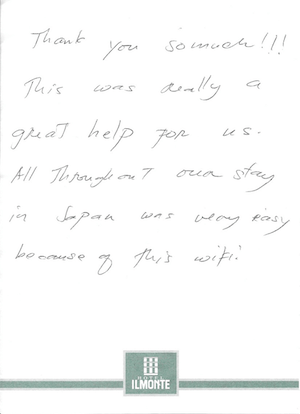 Thank you somuch!!!
This was really a
great help for us.
All Throughout our stay
in Japan was very easy
because of this wifi!
HOTEL
ILMONTE